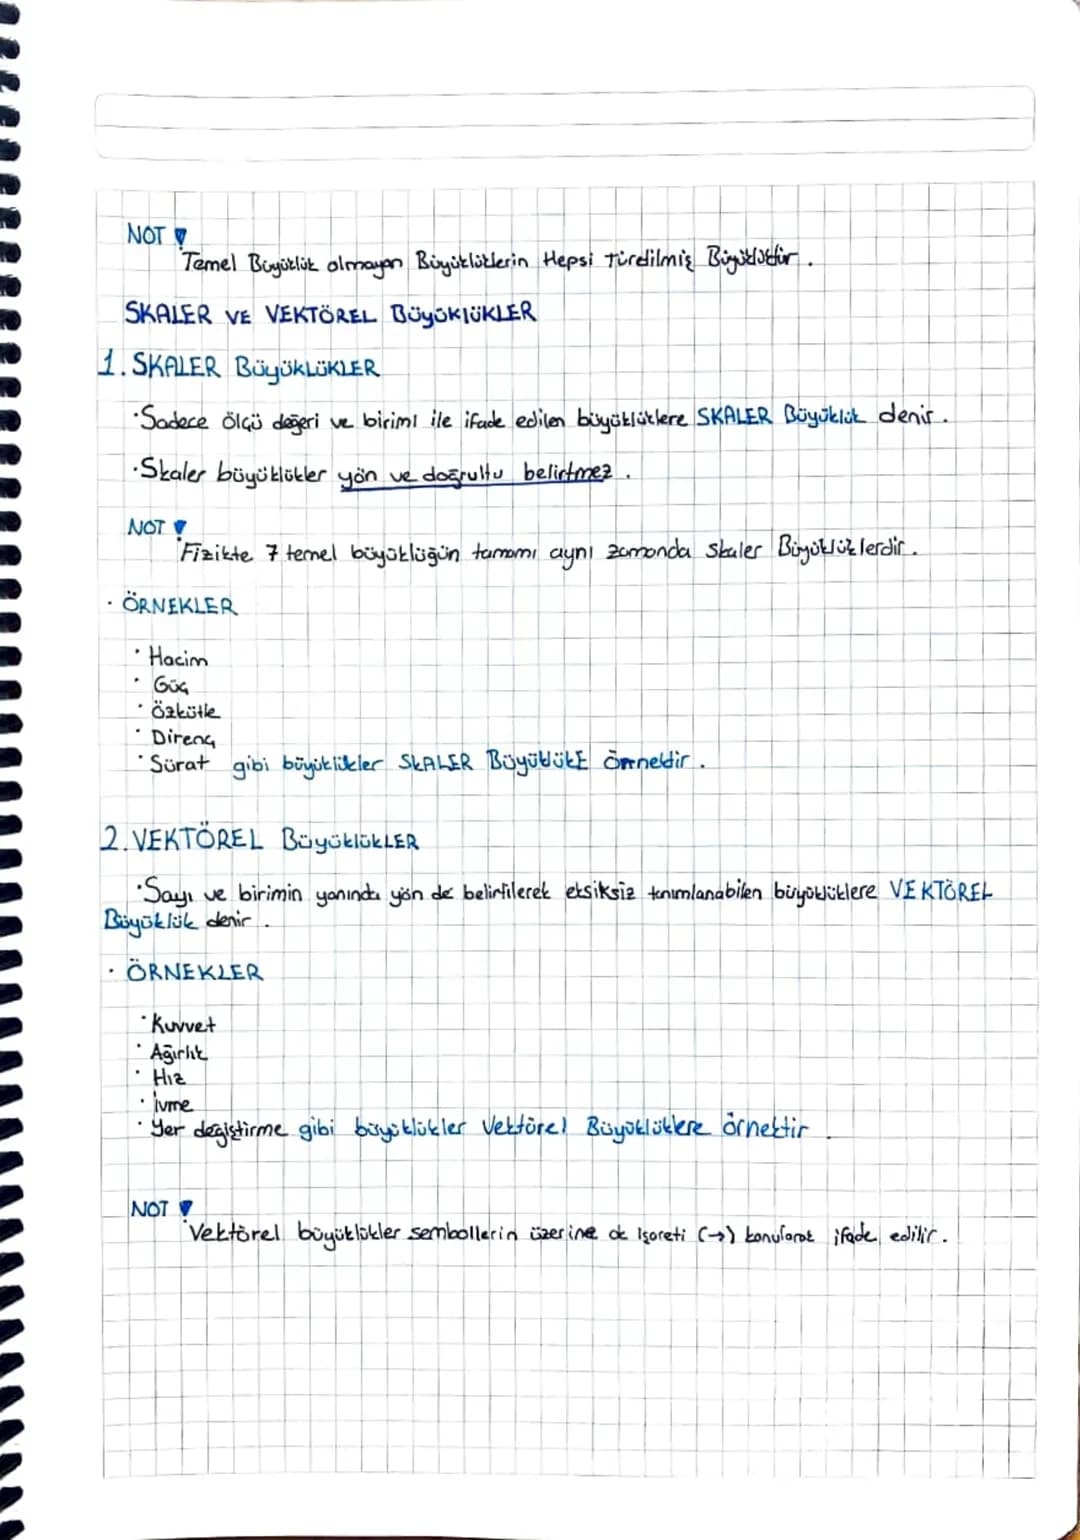 NOT
Temel Büyüklük olmayan Büyüklüklerin Hepsi Türdilmiş Büyüklüktür.
SKALER VE VEKTÖREL BüyüklÜKLER
1. SKALER BüyüKLÜKLER
·Sadece ölçü değeri ve birimi ile ifade edilen büyüklüklere SKALER Büyüklük denir.
·Skaler büyüklükler yön ve doğrultu belirtmez.
NOT
Fizikte 7 temel büyüklüğün tamamı aynı zamanda skaler Büyüklüklerdir.
· ÖRNEKLER
· Hacim
· Güç
· Özkütle
· Direnç
· Sürat gibi büyüklükler SKALER BüyüklükE örnektir.
2. VEKTÖREL BüyüklüKLER
·Sayı ve birimin yanında yön de belirtilerek eksiksiz tanımlanabilen büyüklüklere VEKTÖREL
Büyüklük denir.
· ÖRNEKLER
· Kuvvet
· Ağırlık
· Hız
· İvme
· Yer degiştirme gibi büyüklükler Vektörel Büyüklüklere örnektir
NOT
Vektörel büyüklükler sembollerin üzerine ok işareti (→) konularak ifade edilir.